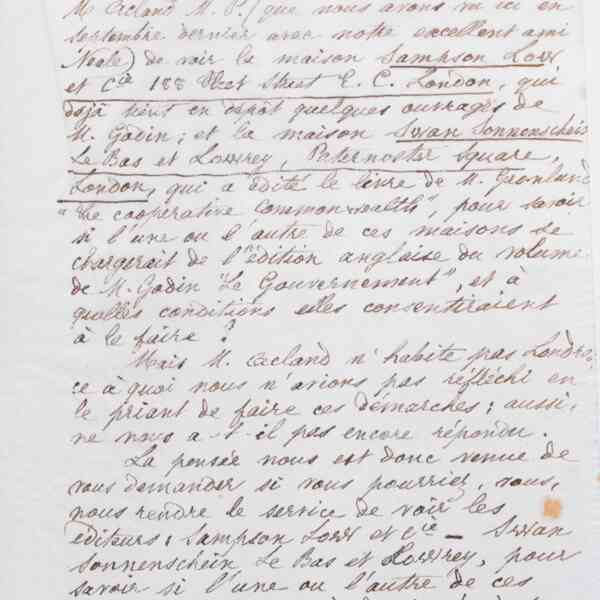 M. Acland M. P. (que nous avons vu ici en
septembre dernier avec notre excellent ami
Neale) de voir la maison Sampson Low
et Cie 188 Fleet Street E. C. London, qui
déjà tient en dépôt quelques ouvrages de
M. Godin; et la maison Swan Sonnenschein
Le Bas et Lowrey, Paternoster Square,
London, qui a édité le livre de M. Gronlund
"The cooperative Commonwealth", pour savoir
si l'une ou l'autre de ces maisons se
chargerait de l'édition anglaise du volume
de M. Godin "Le Gouvernement", et à
quelles conditions elles consentiraient
à le faire?
Mais M. Acland n'habite pas Londres,
ce à quoi nous n'avions pas réfléchi en
le priant de faire ces démarches; aussi,
ne nous a-t-il pas encore répondu.
La pensée nous est donc venue de
vous demander si vous pourriez, vous,
nous rendre le service de voir les
éditeurs: Sampson Low et Cie – Swan
Sonnenschein Le Bas et Lowrey, pour
savoir si l'une ou l'autre de ces